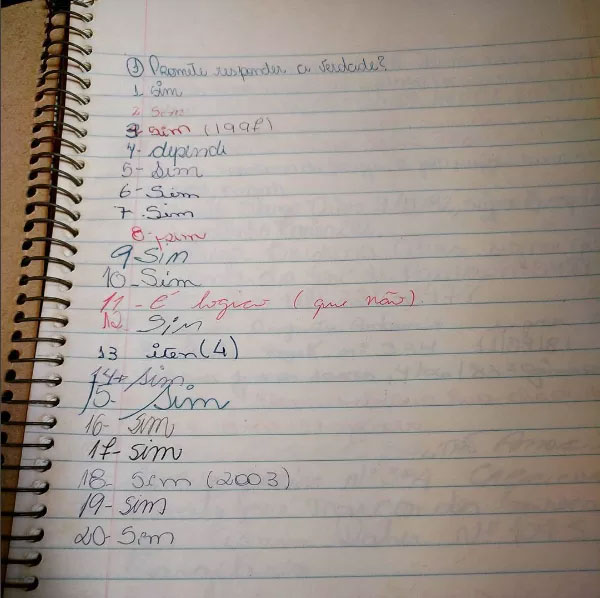 ① Promete responder a verdade?
1 sim
2 sim
3 sim (1998)
4- depende
5- Sim
6- Sim
7- Sim
8- sim
9 Sim
10- Sim
11- É logico (que não)
12- Sim
13 iten (4)
14- sim
15- Sim
16- sim
17- sim
18- Sim (2003)
19- sim
20- Sim